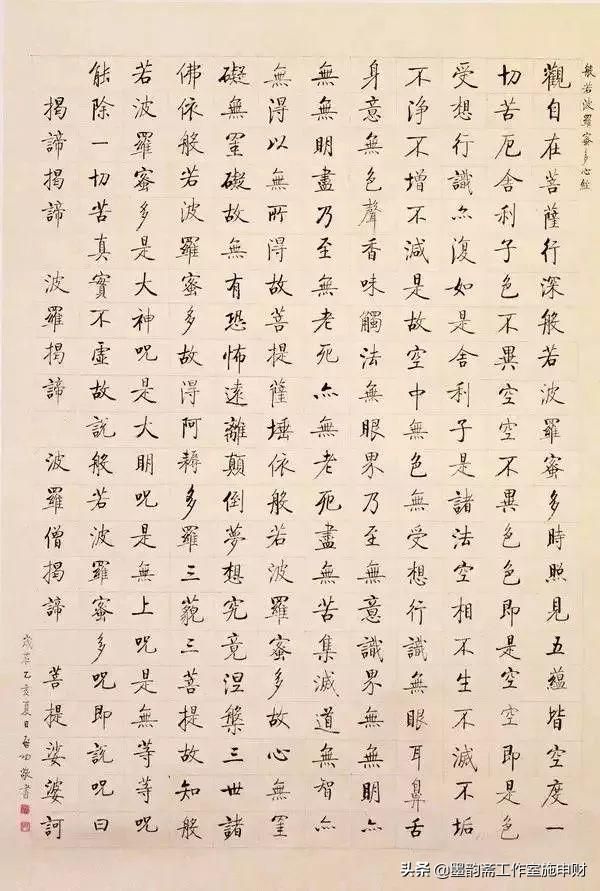 般若波羅蜜多心經
觀自在菩薩行深般若波羅蜜多時照見五蘊皆空度一
切苦厄舍利子色不異空空不異色色即是空空即是色
受想行識亦復如是舍利子是諸法空相不生不滅不垢
不淨不增不減是故空中無色無受想行識無眼耳鼻舌
身意無色聲香味觸法無眼界乃至無意識界無無明亦
無無明盡乃至無老死亦無老死盡無苦集滅道無智亦
無得以無所得故菩提薩埵依般若波羅蜜多故心無罣
礙無罣礙故無有恐怖遠離顛倒夢想究竟涅槃三世諸
佛依般若波羅蜜多故得阿耨多羅三藐三菩提故知般
若波羅蜜多是大神呪是大明呪是無上呪是無等等呪
能除一切苦真實不虛故說般若波羅蜜多呪即說呪曰
揭諦揭諦 波羅揭諦 波羅僧揭諦 菩提娑婆訶
歲在乙亥夏日啓功敬書
头条 @墨韵斋工作室施申财